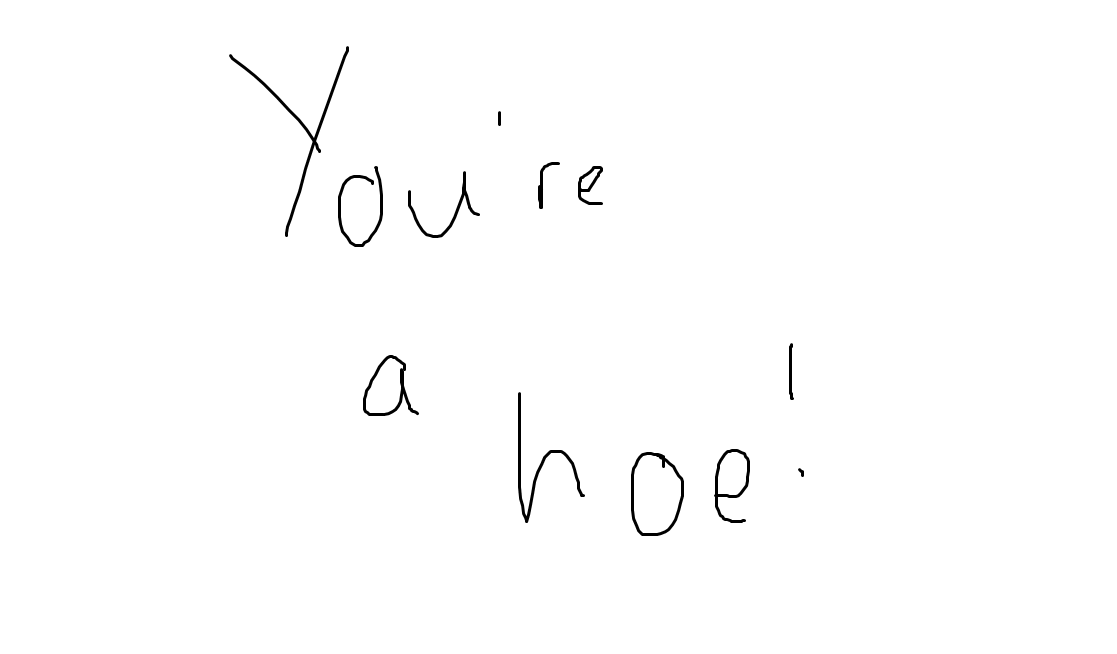 You're
a hoe!